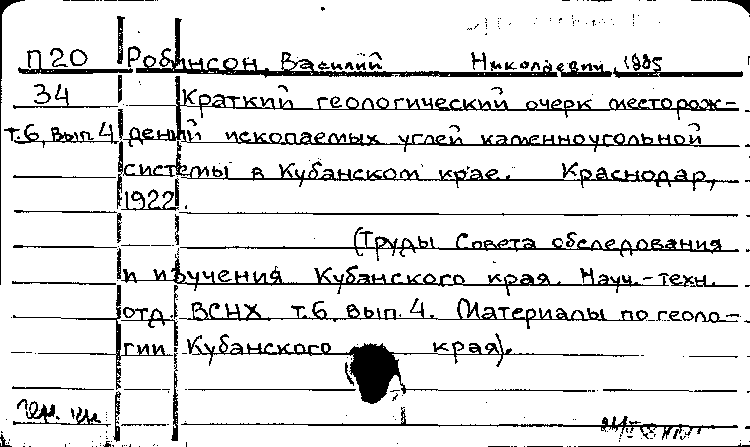 П20 Робинсон, Василий Николаевич, 1885
34 Краткий геологический очерк месторож-
т.6, вып.4 дений ископаемых углей каменноугольной
системы в Кубанском крае. Краснодар,
1922.
(Труды Совета обследования
и изучения Кубанского края. Науч.-техн.
отд. ВСНХ. т.6. вып. 4. Материалы по геоло-
гии Кубанского края).